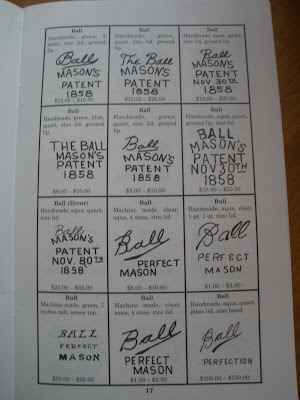 Ball
Handmade, green, 3
sizes, zinc lid, ground
lip.
Ball
MASON'S
PATENT
1858
$12.00 - $10.00
Ball
Handmade, aqua,
quart, zinc lid, ground
lip.
The Ball
MASON'S
PATENT
1858
$10.00 - $25.00
Ball
Handmade, aqua, quart,
zinc lid, ground lip.
Ball
MASON'S
PATENT
NOV 30th
1858
$15.00 - $20.00
Ball
Handmade, green, blue,
quart, zinc lid, ground
lip.
THE BALL
MASON'S
PATENT
1858
$8.00 - $10.00
Ball
Handmade, green,
quart, zinc lid, ground
lip.
Ball
MASON'S
PATENT
1858
$8.00 - $10.00
Ball
Handmade, aqua, quart,
ground lip, zinc lid.
BALL
MASON'S
PATENT
NOV 30TH
1858
$15.00 - $20.00
Ball (Error)
Handmade, aqua, quart,
zinc lid.
Ball
MASON'S
PATENT
NOV. 80TH
1858
$25.00 - $35.00
Ball
Machine made, clear,
aqua, 4 sizes, zinc lid.
Ball
PERFECT
MASON
$8.00 - $10.00
Ball
Machine made, clear,
1 pt. 1 qt. zinc lid.
Ball
PERFECT
MASON
$1.00 - $3.00
Ball
Machine made, green, 7
inches tall, screw top.
BALL
PERFECT
MASON
$20.00 - $25.00
Ball
Machine made, clear,
aqua, 4 sizes, zinc lid.
Ball
PERFECT
MASON
$1.00 - $2.00
Ball
Handmade, aqua, quart,
glass lid, zinc band.
Ball
PERFECTION
$100.00 - $150.00
17